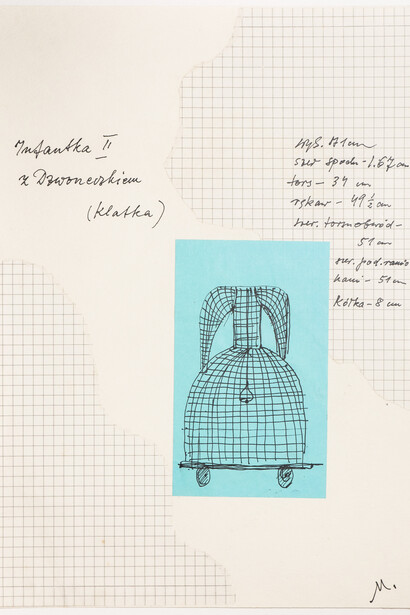 Infantka II
z Dzwoneczkiem
(Klatka)
wys. 171 cm
szer spodn - 1.67 cm
tors - 34 cm
rękaw - 49 ½ cm
szer. torsu obwód -
51 cm
szer. pod. ramio
nami - 51 cm
Kółka - 8 cm
M.